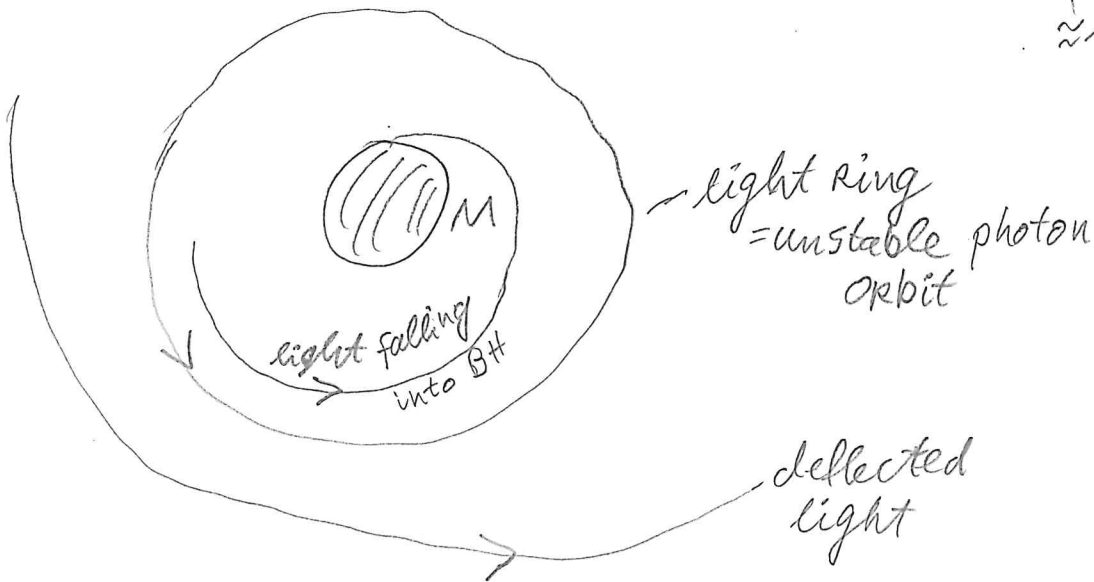 M
light Ring
= unstable photon
orbit
light falling
into BH
deflected
light